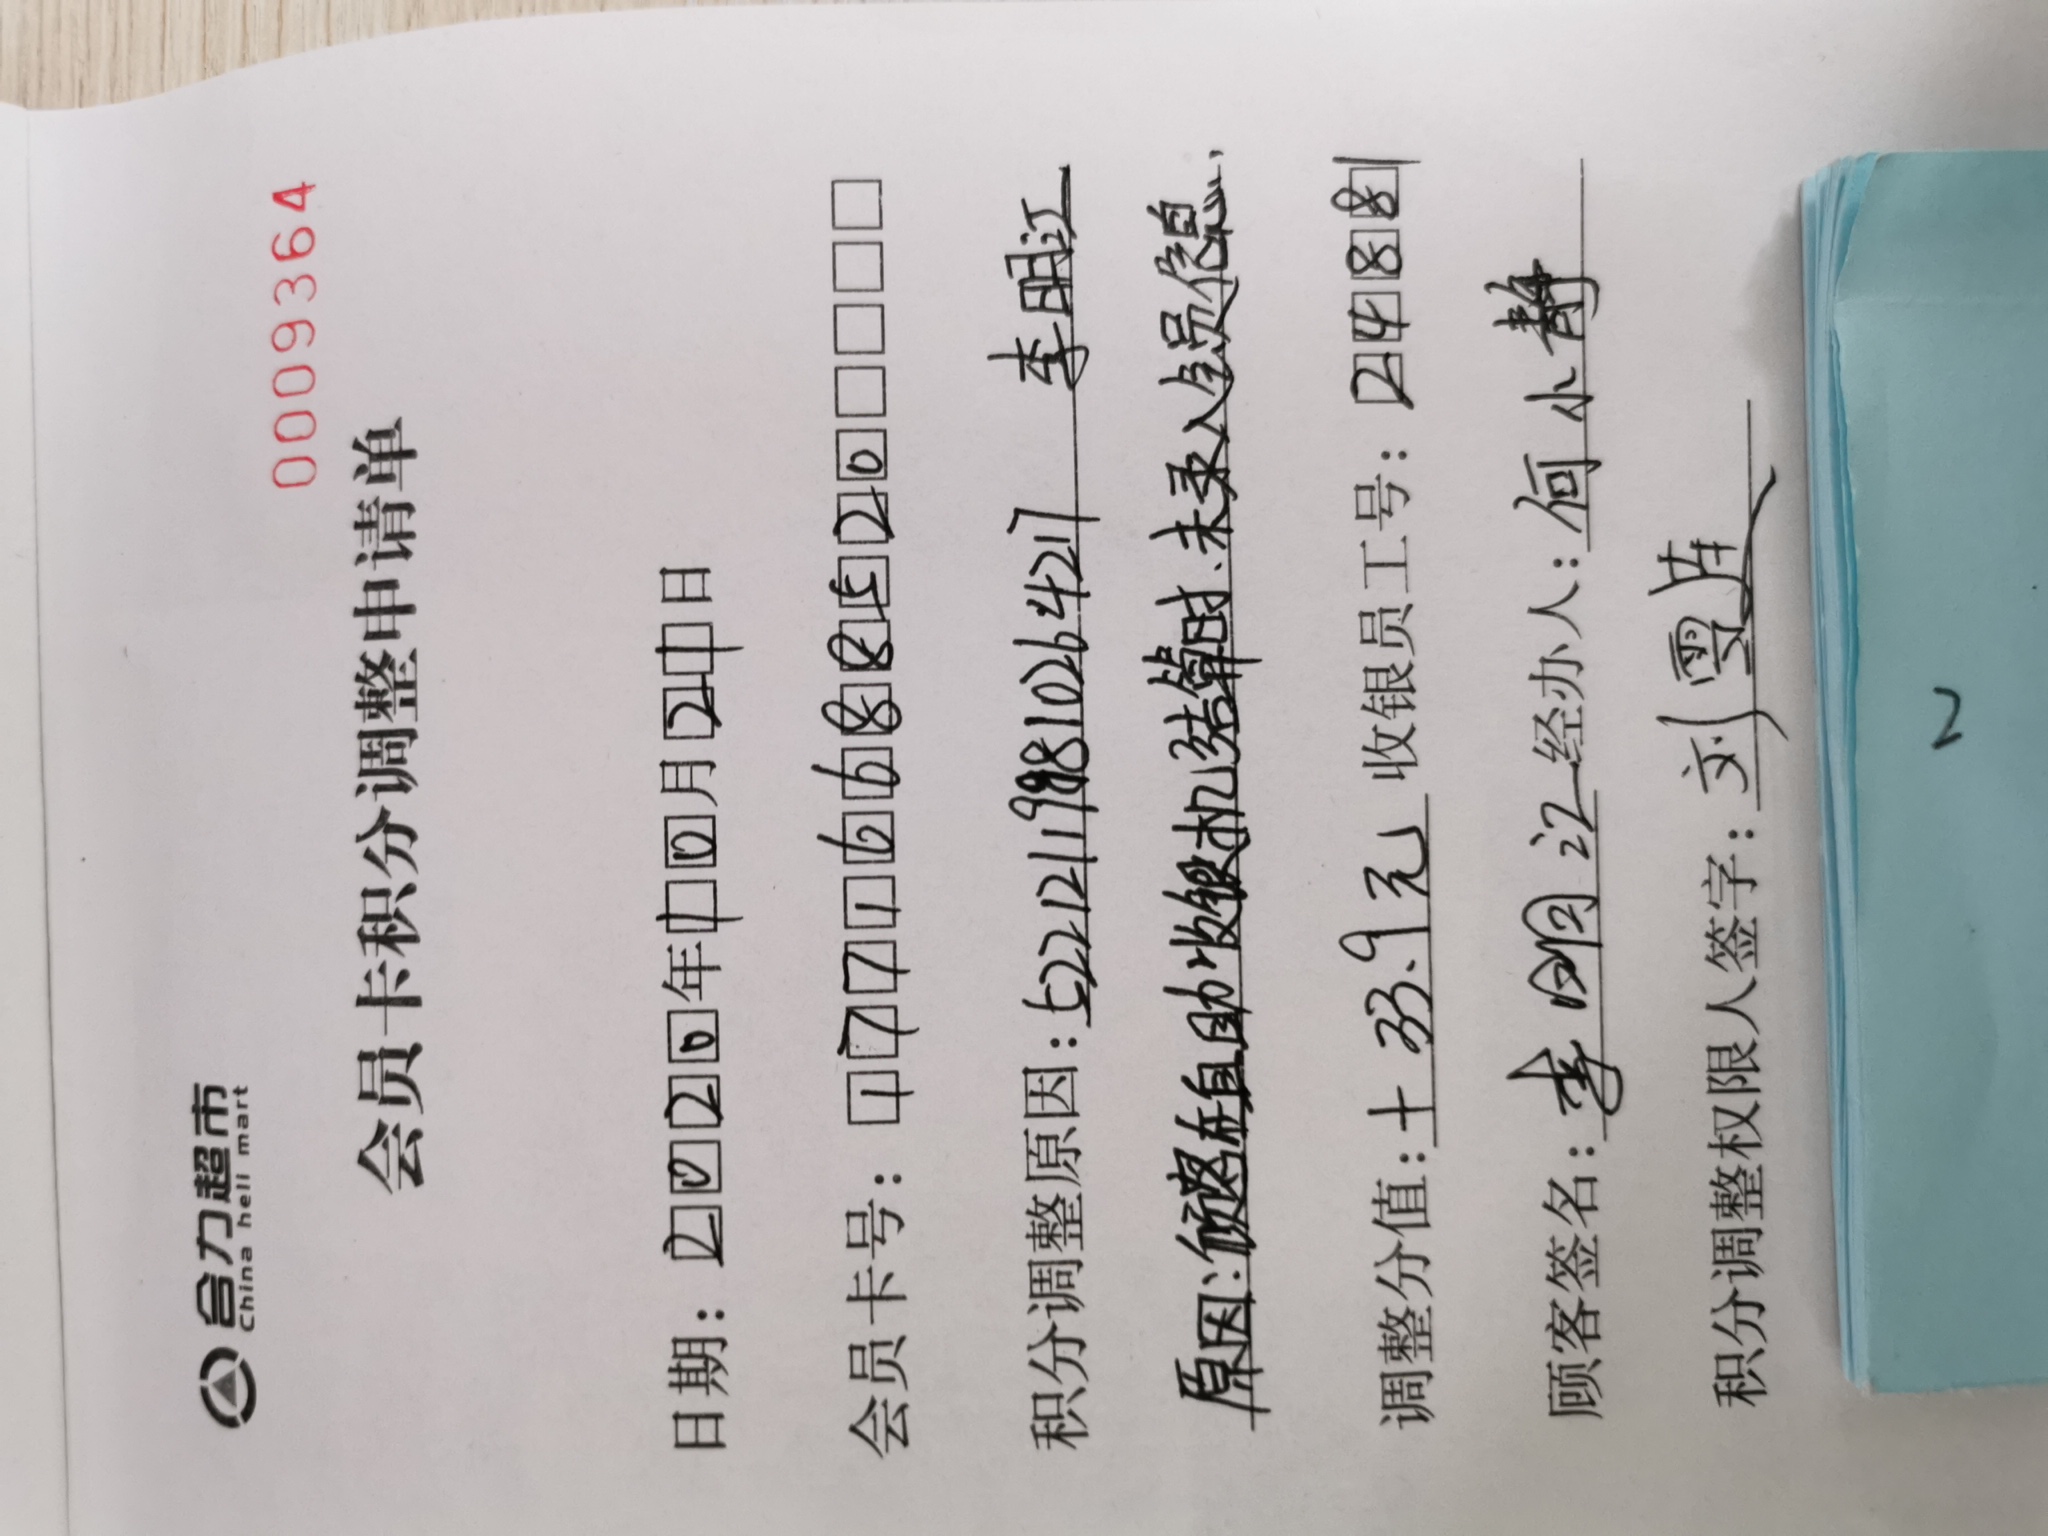 合力超市
China heli mart
0009364
会员卡积分调整申请单
日期：2020年10月21日
会员卡号：17716688520
积分调整原因：522121199810264217 李明江
原因：顾客在自助收银机结算时、未录入会员信息.
调整分值：+ 33.9元 收银员工号：2488
顾客签名：李明江 经办人：何小静
积分调整权限人签字：刘雪
2